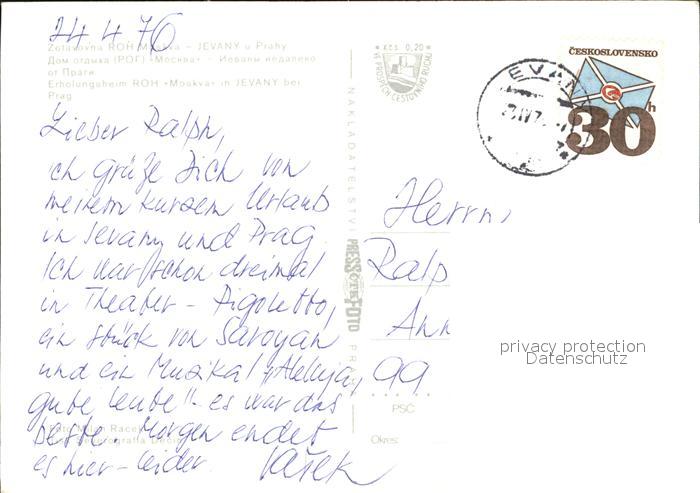 24.4.76
Zotavovna ROH Moskva – JEVANY u Prahy
Дом отдыха (РОГ) «Москва» – Иеваны недалеко
от Праги
Erholungsheim ROH «Moskva» in JEVANY bei
Prag
Lieber Ralph,
ich grüße Dich von
meinem kurzem Urlaub
in Jevany und Prag.
Ich war schon dreimal
in Theater – Rigoletto,
ein Stück von Saroyan
und ein Muzikal „Aleluja,
gute Leute" – es war das
beste. Morgen endet
es hier – leider. Vašek
Foto Milan Racek
NAKLADATELSTVÍ
PRESSFOTO
PRAHA
Kčs 0,20
VE PROSPĚCH ČESTOVNÍHO RUCHU
ČESKOSLOVENSKO
30h
EVAN
Herrn
Ralp
Ann
99
PSČ
Okres:
privacy protection
Datenschutz